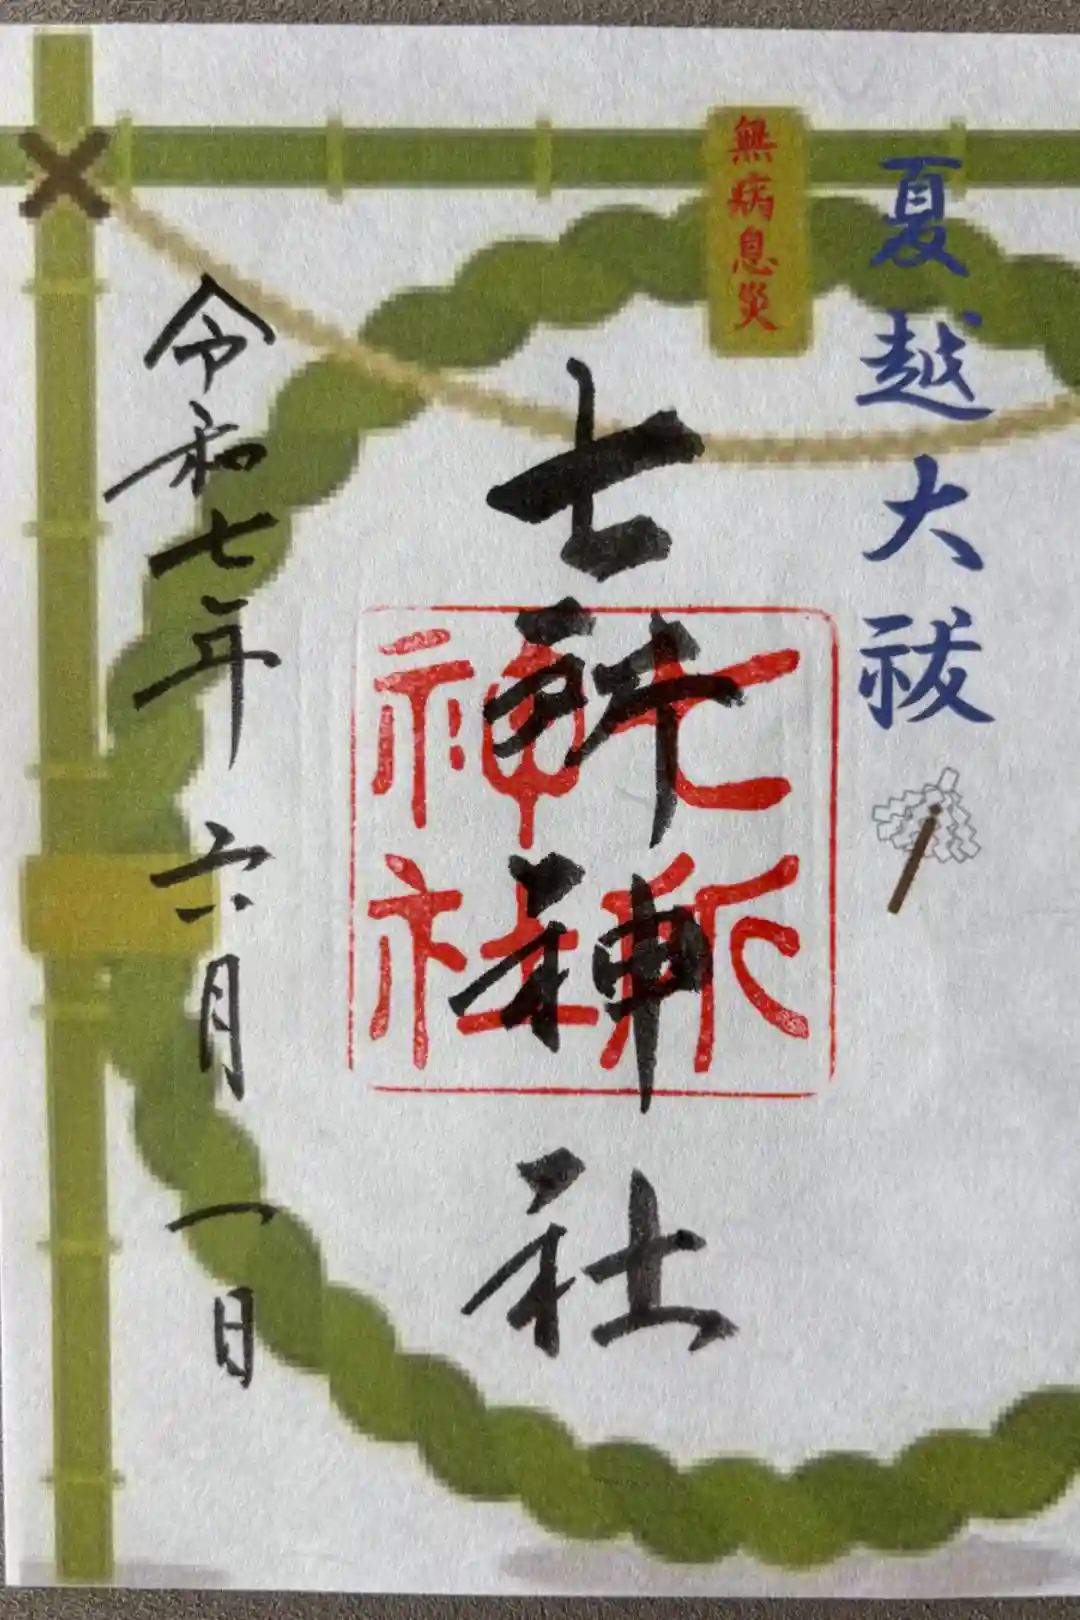 夏越大祓
無病息災
七所神社
七所神社
令和七年六月一日